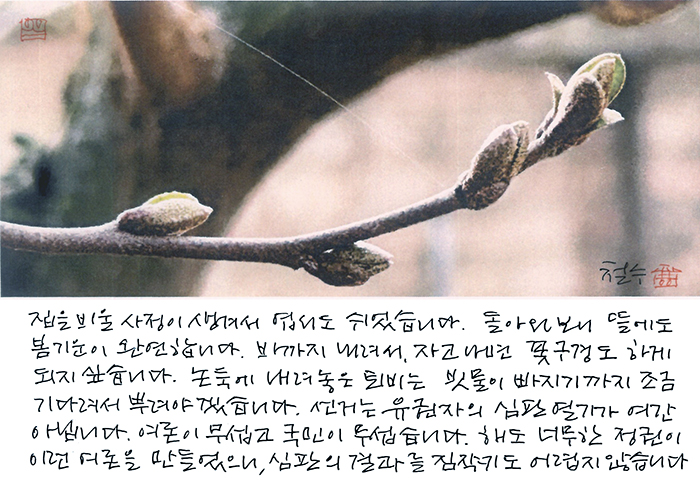 철수
집을 비울 사정이 생겨서 엽서도 쉬었습니다. 돌아와보니 뜰에도
봄기운이 완연합니다. 비까지 내려서, 자고나면 꽃구경도 하게
되지 싶습니다. 논둑에 내려놓은 퇴비는 빗물이 빠지기까지 조금
기다려서 뿌려야겠습니다. 선거는 유권자의 심판열기가 여간
아닙니다. 여론이 무섭고 국민이 무섭습니다. 해도 너무한 정권이
이런 여론을 만들었으니, 심판의 결과를 짐작키도 어렵지 않습니다